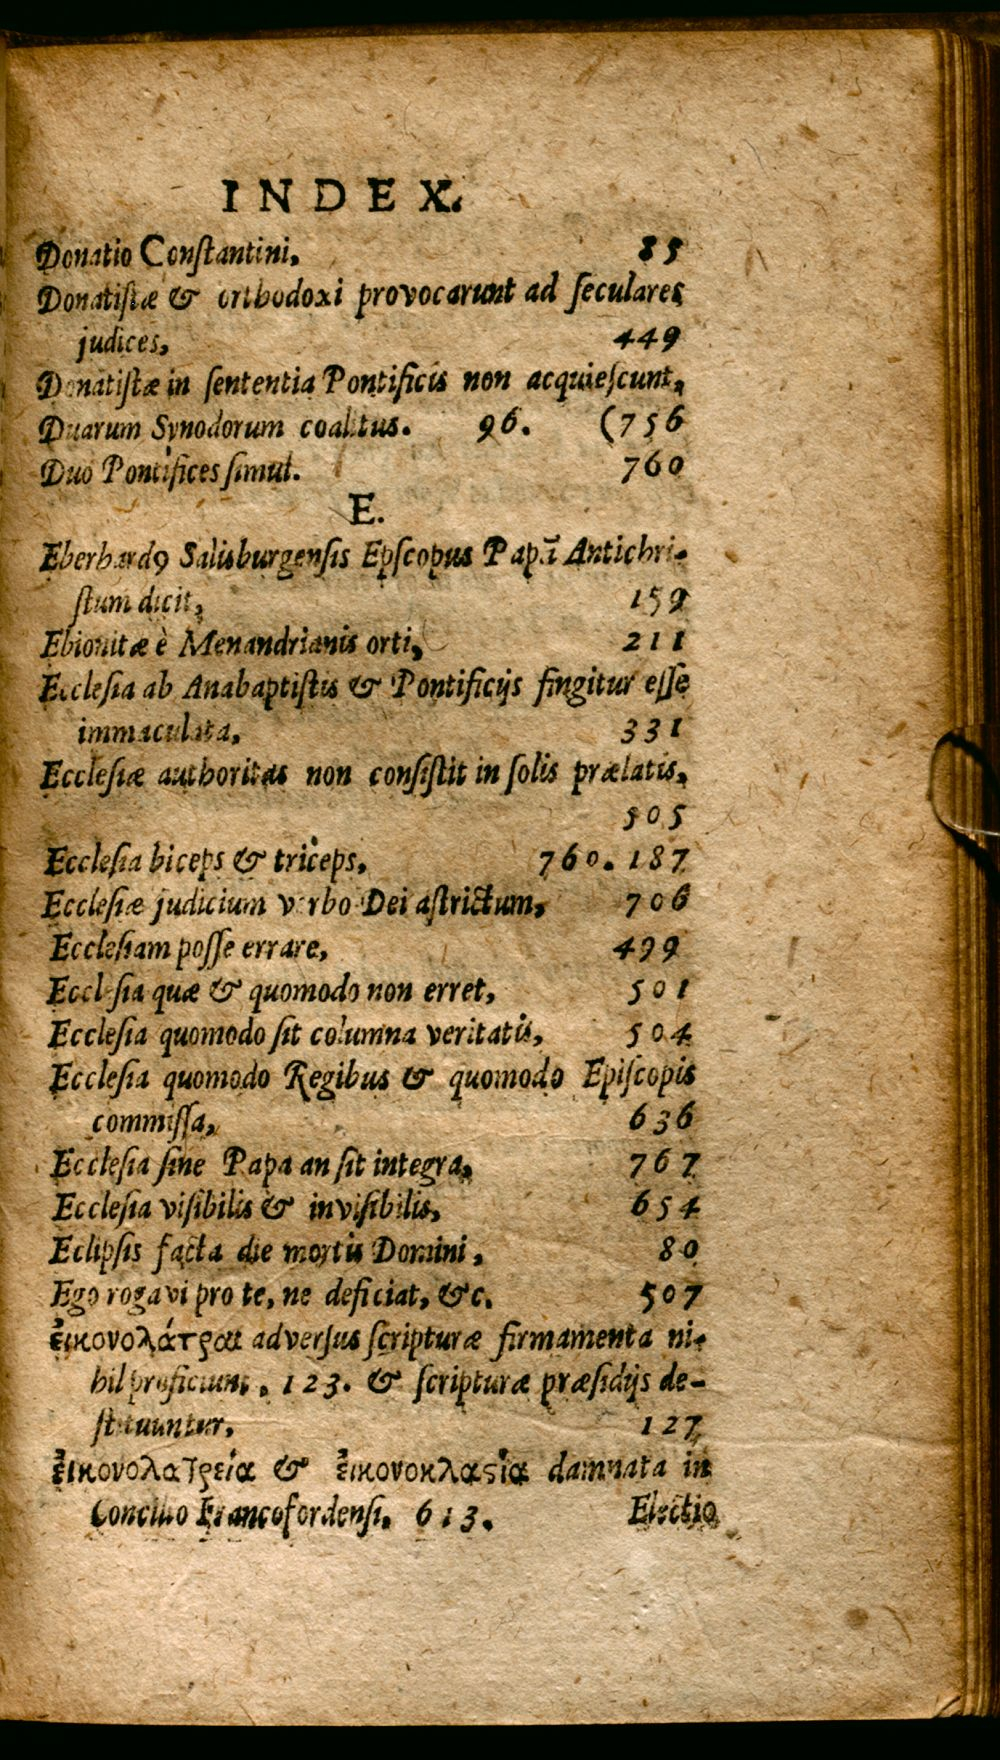 INDEX.
Donatio Conſtantini, 85
Donatiſtæ & orthodoxi provocarunt ad ſeculares
judices, 449
Donatiſtæ in ſententia Pontificis non acquieſcunt,
Duarum Synodorum coalitus. 96. (756
Duo Pontifices ſimul. 760
E.
Eberhardꝰ Salisburgenſis Epſcopus Papā Antichri-
ſtum dicit, 159
Ebionitæ è Menandrianis orti, 211
Eccleſia ab Anabaptiſtis & Pontificijs fingitur eſſe
immaculata, 331
Eccleſiæ authoritas non conſiſtit in ſolis prælatis,
505
Eccleſia biceps & triceps, 760. 187
Eccleſiæ judicium verbo Dei aſtrictum, 706
Eccleſiam poſſe errare, 499
Eccleſia quæ & quomodo non erret, 501
Eccleſia quomodo ſit columna veritatis, 504
Eccleſia quomodo Regibus & quomodo Epiſcopis
commiſſa, 636
Eccleſia ſine Papa an ſit integra, 767
Eccleſia viſibilis & inviſibilis, 654
Eclipſis facta die mortis Domini, 80
Ego rogavi pro te, ne deficiat, &c. 507
εἰκονολάτραι adverſus ſcripturæ firmamenta ni-
hil proficiunt, 123. & ſcripturæ præſidijs de-
ſtituuntur, 127
εἰκονολατρεία & εἰκονοκλασία damnata in
Concilio Francofordenſi, 613. Electio